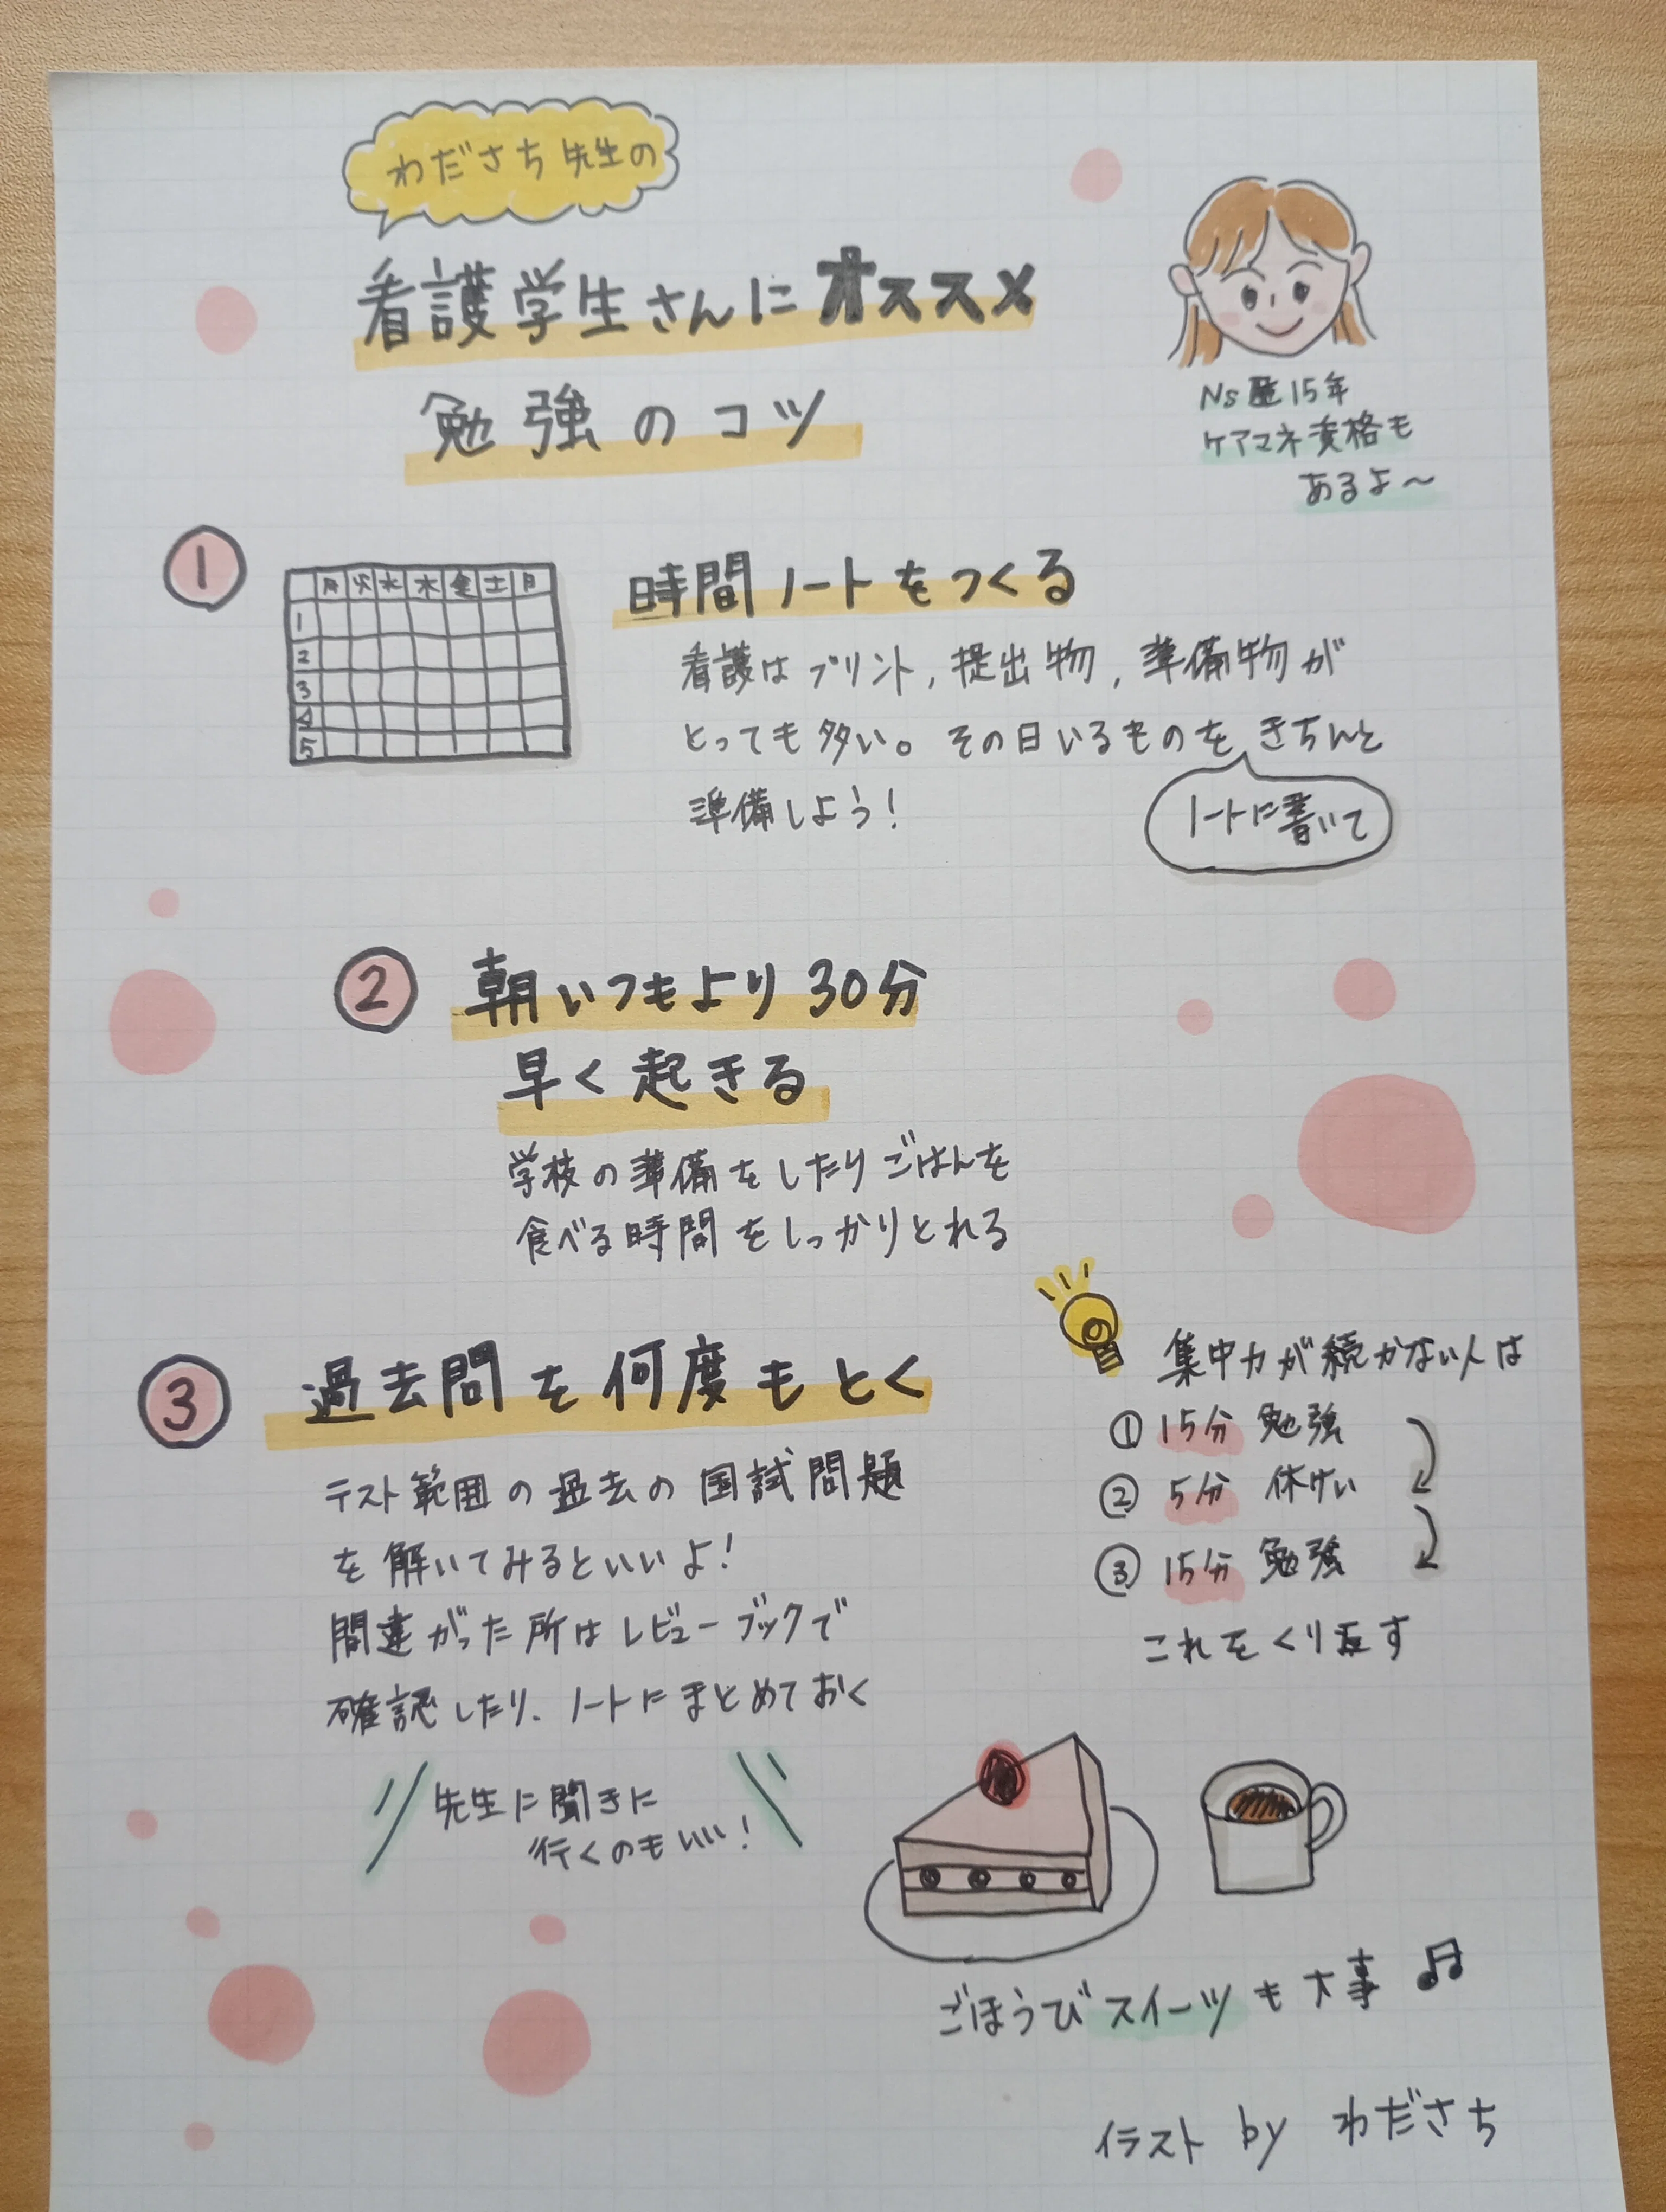 わださち先生の
看護学生さんにオススメ
勉強のコツ
Ns歴15年
ケアマネ資格も
あるよ～
①
月 火 水 木 金 土 日
1
2
3
4
5
時間ノートをつくる
看護はプリント,提出物,準備物が
とっても多い。その日いるものをきちんと
ノートに書いて
準備しよう!
② 朝いつもより30分
早く起きる
学校の準備をしたりごはんを
食べる時間をしっかりとれる
③ 過去問を何度もとく
テスト範囲の過去の国試問題
を解いてみるといいよ!
間違がった所はレビューブックで
確認したり、ノートにまとめておく
先生に聞きに
行くのもいい!
集中力が続かない人は
① 15分 勉強
② 5分 休けい
③ 15分 勉強
これをくり返す
ごほうびスイーツも大事♫
イラスト by わださち